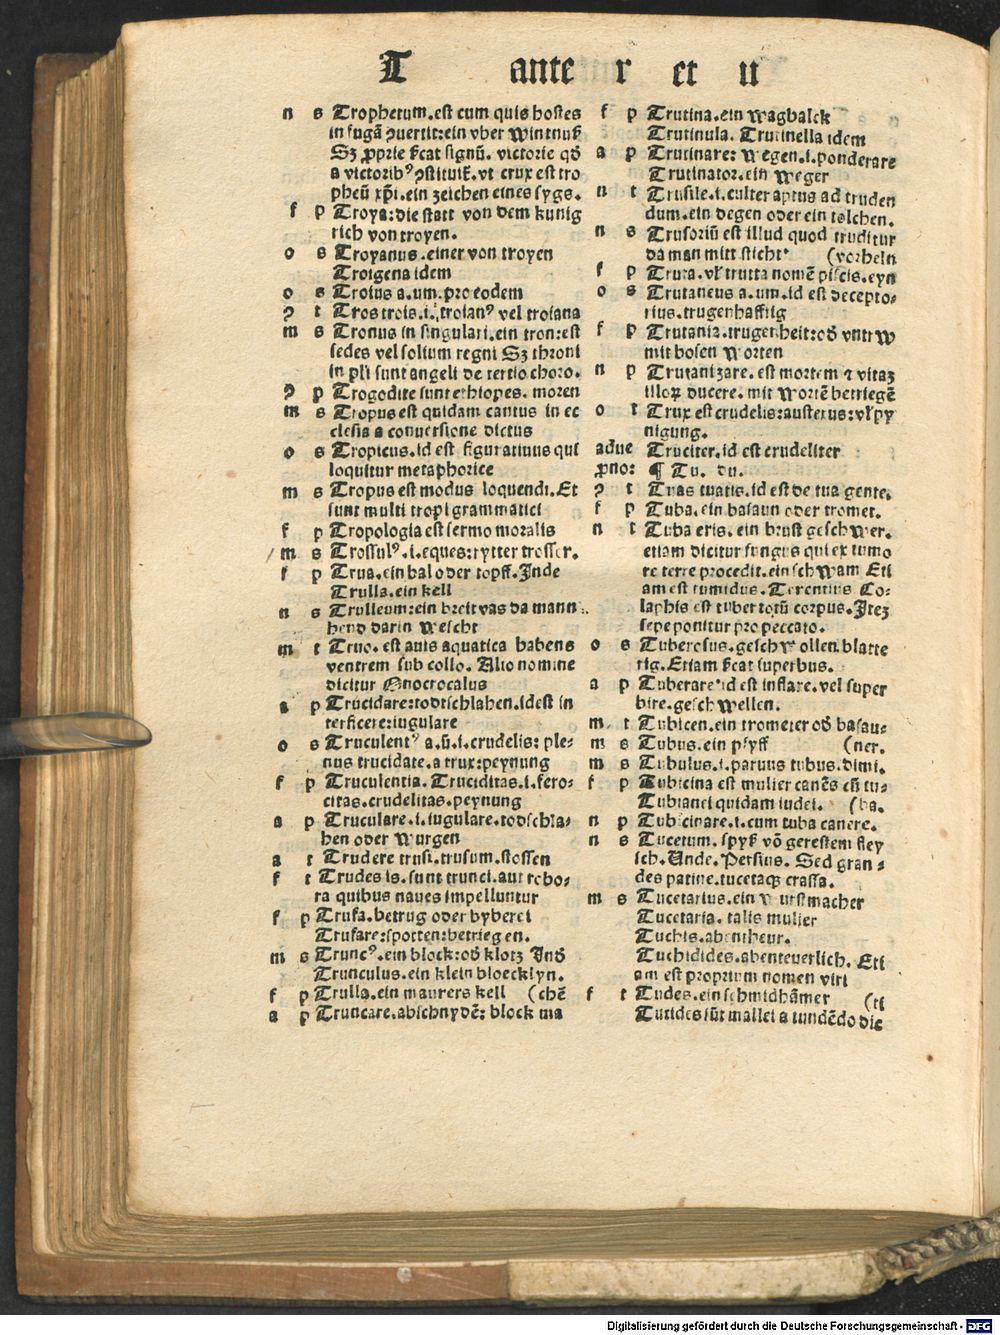 T ante r et u
n s Trophetum.est cum quis hostes
in fugā ꝯuertit:ein vber wintnuß
Sꝫ ꝓprie ſ̄cat signū. victorie qđ
a victoribꝰ ꝯstituiꝉ. vt crux est tro
pheū xp̄i.ein zeichen eines sygs.
f p Troya:die statt von dem kunig
rich von troyen.
o s Troyanus.einer von troyen
Troigena idem
o s Troius a.um.pro eodem
ꝯ t Tros trois.i.troianꝰ vel troiana
m s Tronus in singulari.ein tron:est
sedes vel solium regni Sꝫ throni
in pl'i sunt angeli de tertio choro.
ꝯ p Trogodite sunt ethiopes. moren
m s Tropus est quidam cantus in ec
clesia a conuersione dictus
o s Tropicus.id est figuratiuus qui
loquitur metaphorice
m s Tropus est modus loquendi.Et
sunt multi tropi grammatici
f p Tropologia est sermo moralis
m s Trossulꝰ.i.eques:rytter trosser.
f p Trua.ein hal oder topff.Inde
Trulla.ein kell
n s Trulleum:ein breit vas da mann
hend darin wescht
m t Truo. est auis aquatica habens
ventrem sub collo. Alio nomine
dicitur Onocrocalus
a p Trucidare:todtschlahen.idest in
terficere:iugulare
o s Truculentꝰ a.ū.i.crudelis: ple⸗
nus trucidate.a trux:peynung
f p Truculentia. Truciditas.i.fero⸗
citas.crudelitas.peynung
a p Truculare.i.iugulare.todschla⸗
hen oder wurgen
a t Trudere trusi.trusum.stossen
f t Trudes is.sunt trunci.aut robo⸗
ra quibus naues impelluntur
f p Trufa.betrug oder byberei
Trufare:spotten:betriegen.
m s Truncꝰ.ein block:ođ klotz Inđ
Trunculus.ein klein bloecklyn.
f p Trulla.ein maurers kell (chē
a p Truncare.abschnydē: block ma
f p Trutina.ein wagbalck
Trutinula. Trutinella idem
a p Trutinare: wegen.i.ponderare
Trutinator.ein weger
n t Trusile.i.culter aptus ad truden
dum.ein degen oder ein tolchen.
n s Trusoriū est illud quod truditur
da man mitt sticht (vorheln
f p Truta.vl' trutta nomē piscis.eyn
o s Trutaneus a.um.id est decepto⸗
rius.trugenhafftig
f p Trutania.trugenheit:ođ vntrw
mit bosen worten
n p Trutanizare. est mortem ⁊ vitaꝫ
illoꝝ ducere. mit wortē betriegē
o t Trux est crudelis:austerus:vl' py
nigung.
adue Truciter.id est crudeliter
ꝓno: ¶ Tu. du.
ꝯ t Tuas tuatis.id est de tua gente.
f p Tuba.ein basaun oder tromet.
n t Tuba eris.ein brust geschwer.
etiam dicitur fungus qui ex tumo
re terre procedit.ein schwam Eti
am est tumidus. Terentius Co⸗
laphis est tuber totū corpus.Iteꝫ
sepe ponitur pro peccato.
o s Tuberosus.geschwollen.blatte
rig.Etiam ſ̄cat superbus.
a p Tuberare id est inflare.vel super
bire.geschwellen.
m t Tubicen.ein trometer ođ basau⸗
m s Tubus.ein pfyff (ner.
m s Tubulus.i.paruus tubus.dimi.
f p Tubicina est mulier canēs cū tu⸗
Tubianci quidam iudei. (ba.
n p Tubicinare.i.cum tuba canere.
n s Tucetum. spyß vō gerestem fley
sch.Unde.Persius. Sed gran⸗
des patine.tucetaqꝫ crassa.
m s Tucetarius.ein wurstmacher
Tucetaria. talis mulier
Tuchis.abentheur.
Tuchidides.abenteuerlich. Eti
am est proprium nomen viri
f t Tudes.ein schmidhāmer (ti
Tutides sūt mallei a tundēdo dic
Digitalisierung gefördert durch die Deutsche Forschungsgemeinschaft - DFG